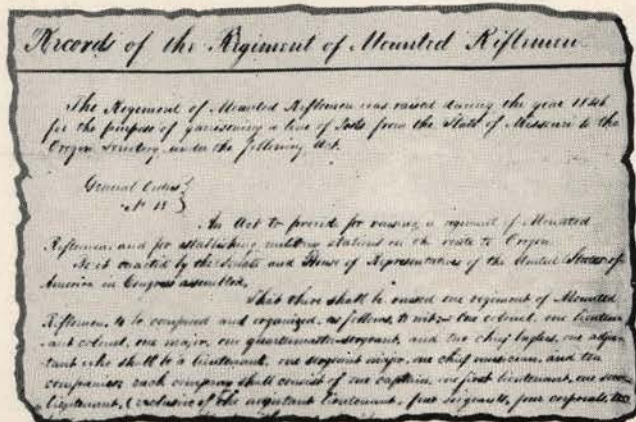 Records of the Regiment of Mounted Riflemen
The Regiment of Mounted Riflemen was raised during the year 1846
for the purpose of garrisoning a line of Posts from the State of Missouri to the
Oregon Territory under the following Act.
General Orders }
No 18 }
An Act to provide for raising a regiment of Mounted
Riflemen, and for establishing military stations on the route to Oregon.
Be it enacted by the Senate and House of Representatives of the United States of
America in Congress assembled,
That there shall be raised one regiment of Mounted
Riflemen, to be composed and organized, as follows, to wit:- One colonel, one lieuten-
ant colonel, one major, one quartermaster-sergeant, and two chief buglers, one adju-
tant who shall be a lieutenant, one sergeant major, one chief musician, and ten
companies; each company shall consist of one captain, one first lieutenant, one
lieutenant, (exclusive of the adjutant lieutenant, four sergeants, four corporals,